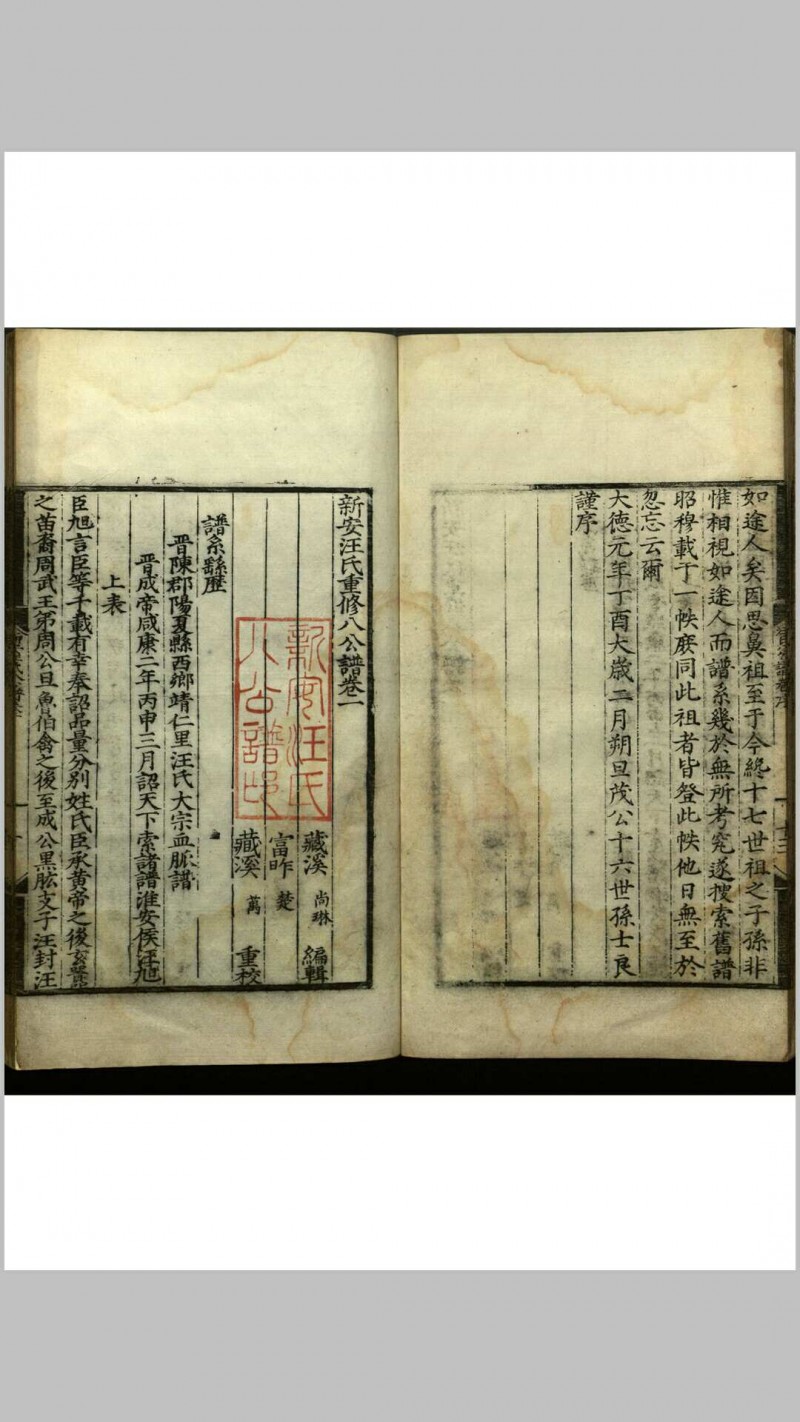 如途人矣因思鼻祖至于今終十七世祖之子孫非
惟相視如途人而譜系幾於無所考究遂搜索舊譜
昭穆載于一帙庶同此祖者皆登此帙他日無至於
忽忘云爾
大德元年丁酉大歲二月朔旦茂公十六世孫士良
謹序
新安汪氏重修八公譜卷一
藏溪 尚琳 編輯
富昨 楚
藏溪 萬 重校
新安汪氏
八公譜印
譜系繇歷
晋陳郡陽夏縣西鄉靖仁里汪氏大宗血脈譜
晋成帝咸康二年丙申三月詔天下索諸譜淮安侯汪旭
上表
臣旭言臣等千載有幸奉詔品量分別姓氏臣承黄帝之後玄嚣
之苗裔周武王弟周公旦魯伯禽之後至成公黑肱支子汪封汪